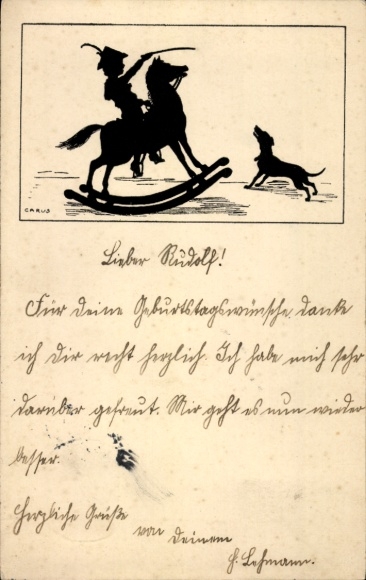 CARUS
Lieber Rudolf!
Für deine Geburtstagswünsche danke
ich Dir recht herzlich. Ich habe mich sehr
darüber gefreut. Mir geht es nun wieder
besser.
Herzliche Grüße
von Deinem
H. Lehmann.